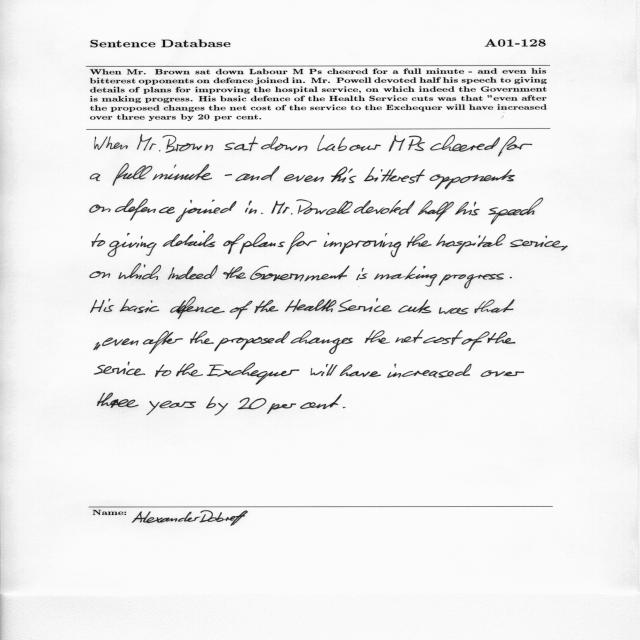 Sentence Database A01-128
When Mr. Brown sat down Labour M Ps cheered for a full minute - and even his
bitterest opponents on defence joined in. Mr. Powell devoted half his speech to giving
details of plans for improving the hospital service, on which indeed the Government
is making progress. His basic defence of the Health Service cuts was that "even after
the proposed changes the net cost of the service to the Exchequer will have increased
over three years by 20 per cent.
When Mr. Brown sat down Labour MPs cheered for
a full minute - and even his bitterest opponents
on defence joined in. Mr. Powell devoted half his speech
to giving details of plans for improving the hospital service,
on which indeed the Government is making progress.
His basic defence of the Health Service cuts was that
„even after the proposed changes the net cost of the
service to the Exchequer will have increased over
three years by 20 per cent.
Name: Alexander Dobroff